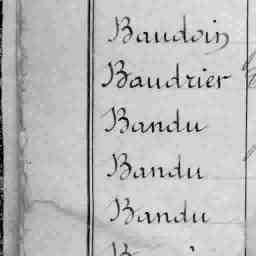 Baudoin
Baudrier
Bandu
Bandu
Bandu